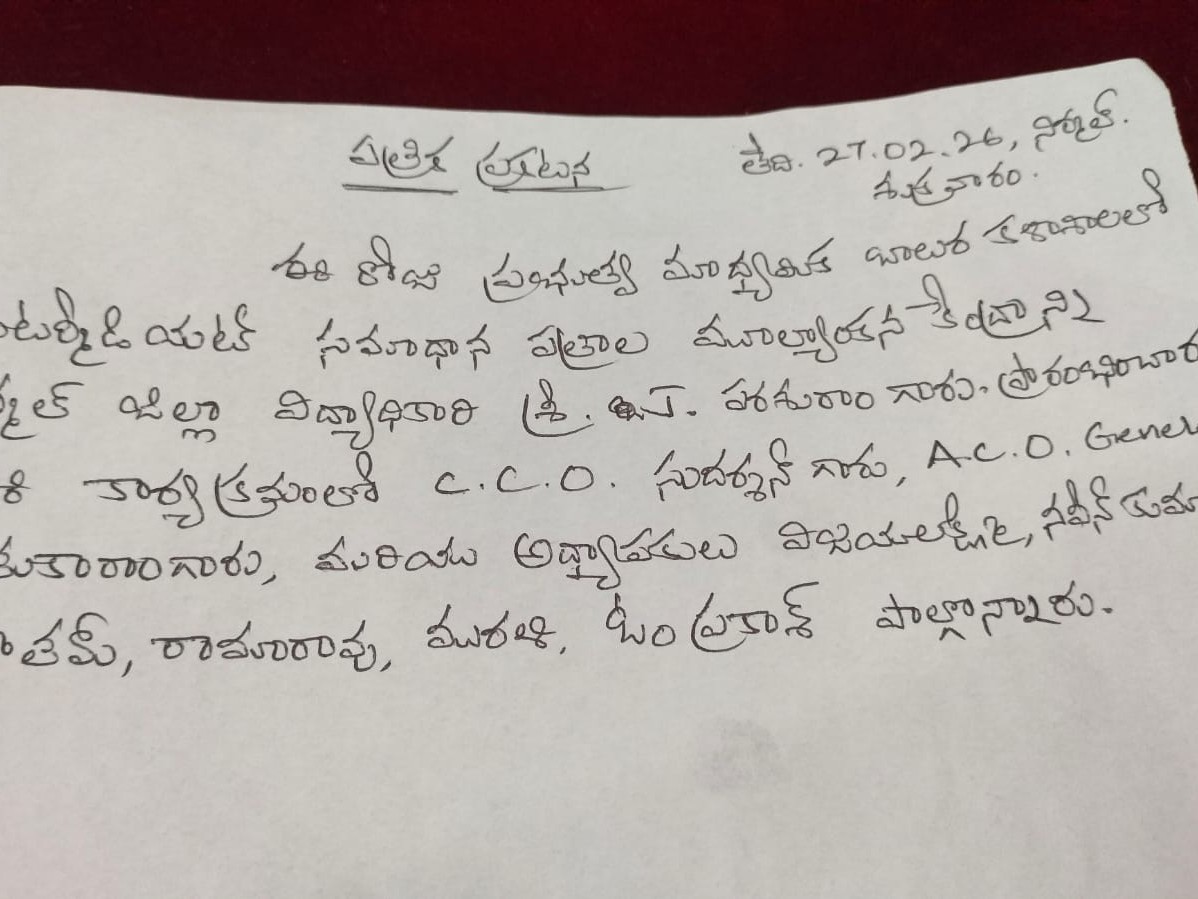 పత్రిక ప్రకటన
తేది. 27.02.26, నిర్మల్.
శుక్రవారం.
ఈ రోజు ప్రభుత్వ మాధ్యమిక బాలుర కళాశాలలో
ంటర్మీడియట్ సమాధాన పత్రాల మూల్యాంకన కేంద్రాన్ని
ర్మల్ జిల్లా విద్యాధికారి శ్రీ. J. పరశురాం గారు. ప్రారంభించారు
కార్యక్రమంలో C.C.O. సుదర్శన్ గారు, A.C.O. Gener
తుకారాంగారు, మరియు అధ్యాపకులు విజయలక్ష్మి, నవీన్ కుమా
తమ్, రామారావు, మురళి, ఓం ప్రకాశ్ పాల్గొన్నారు.